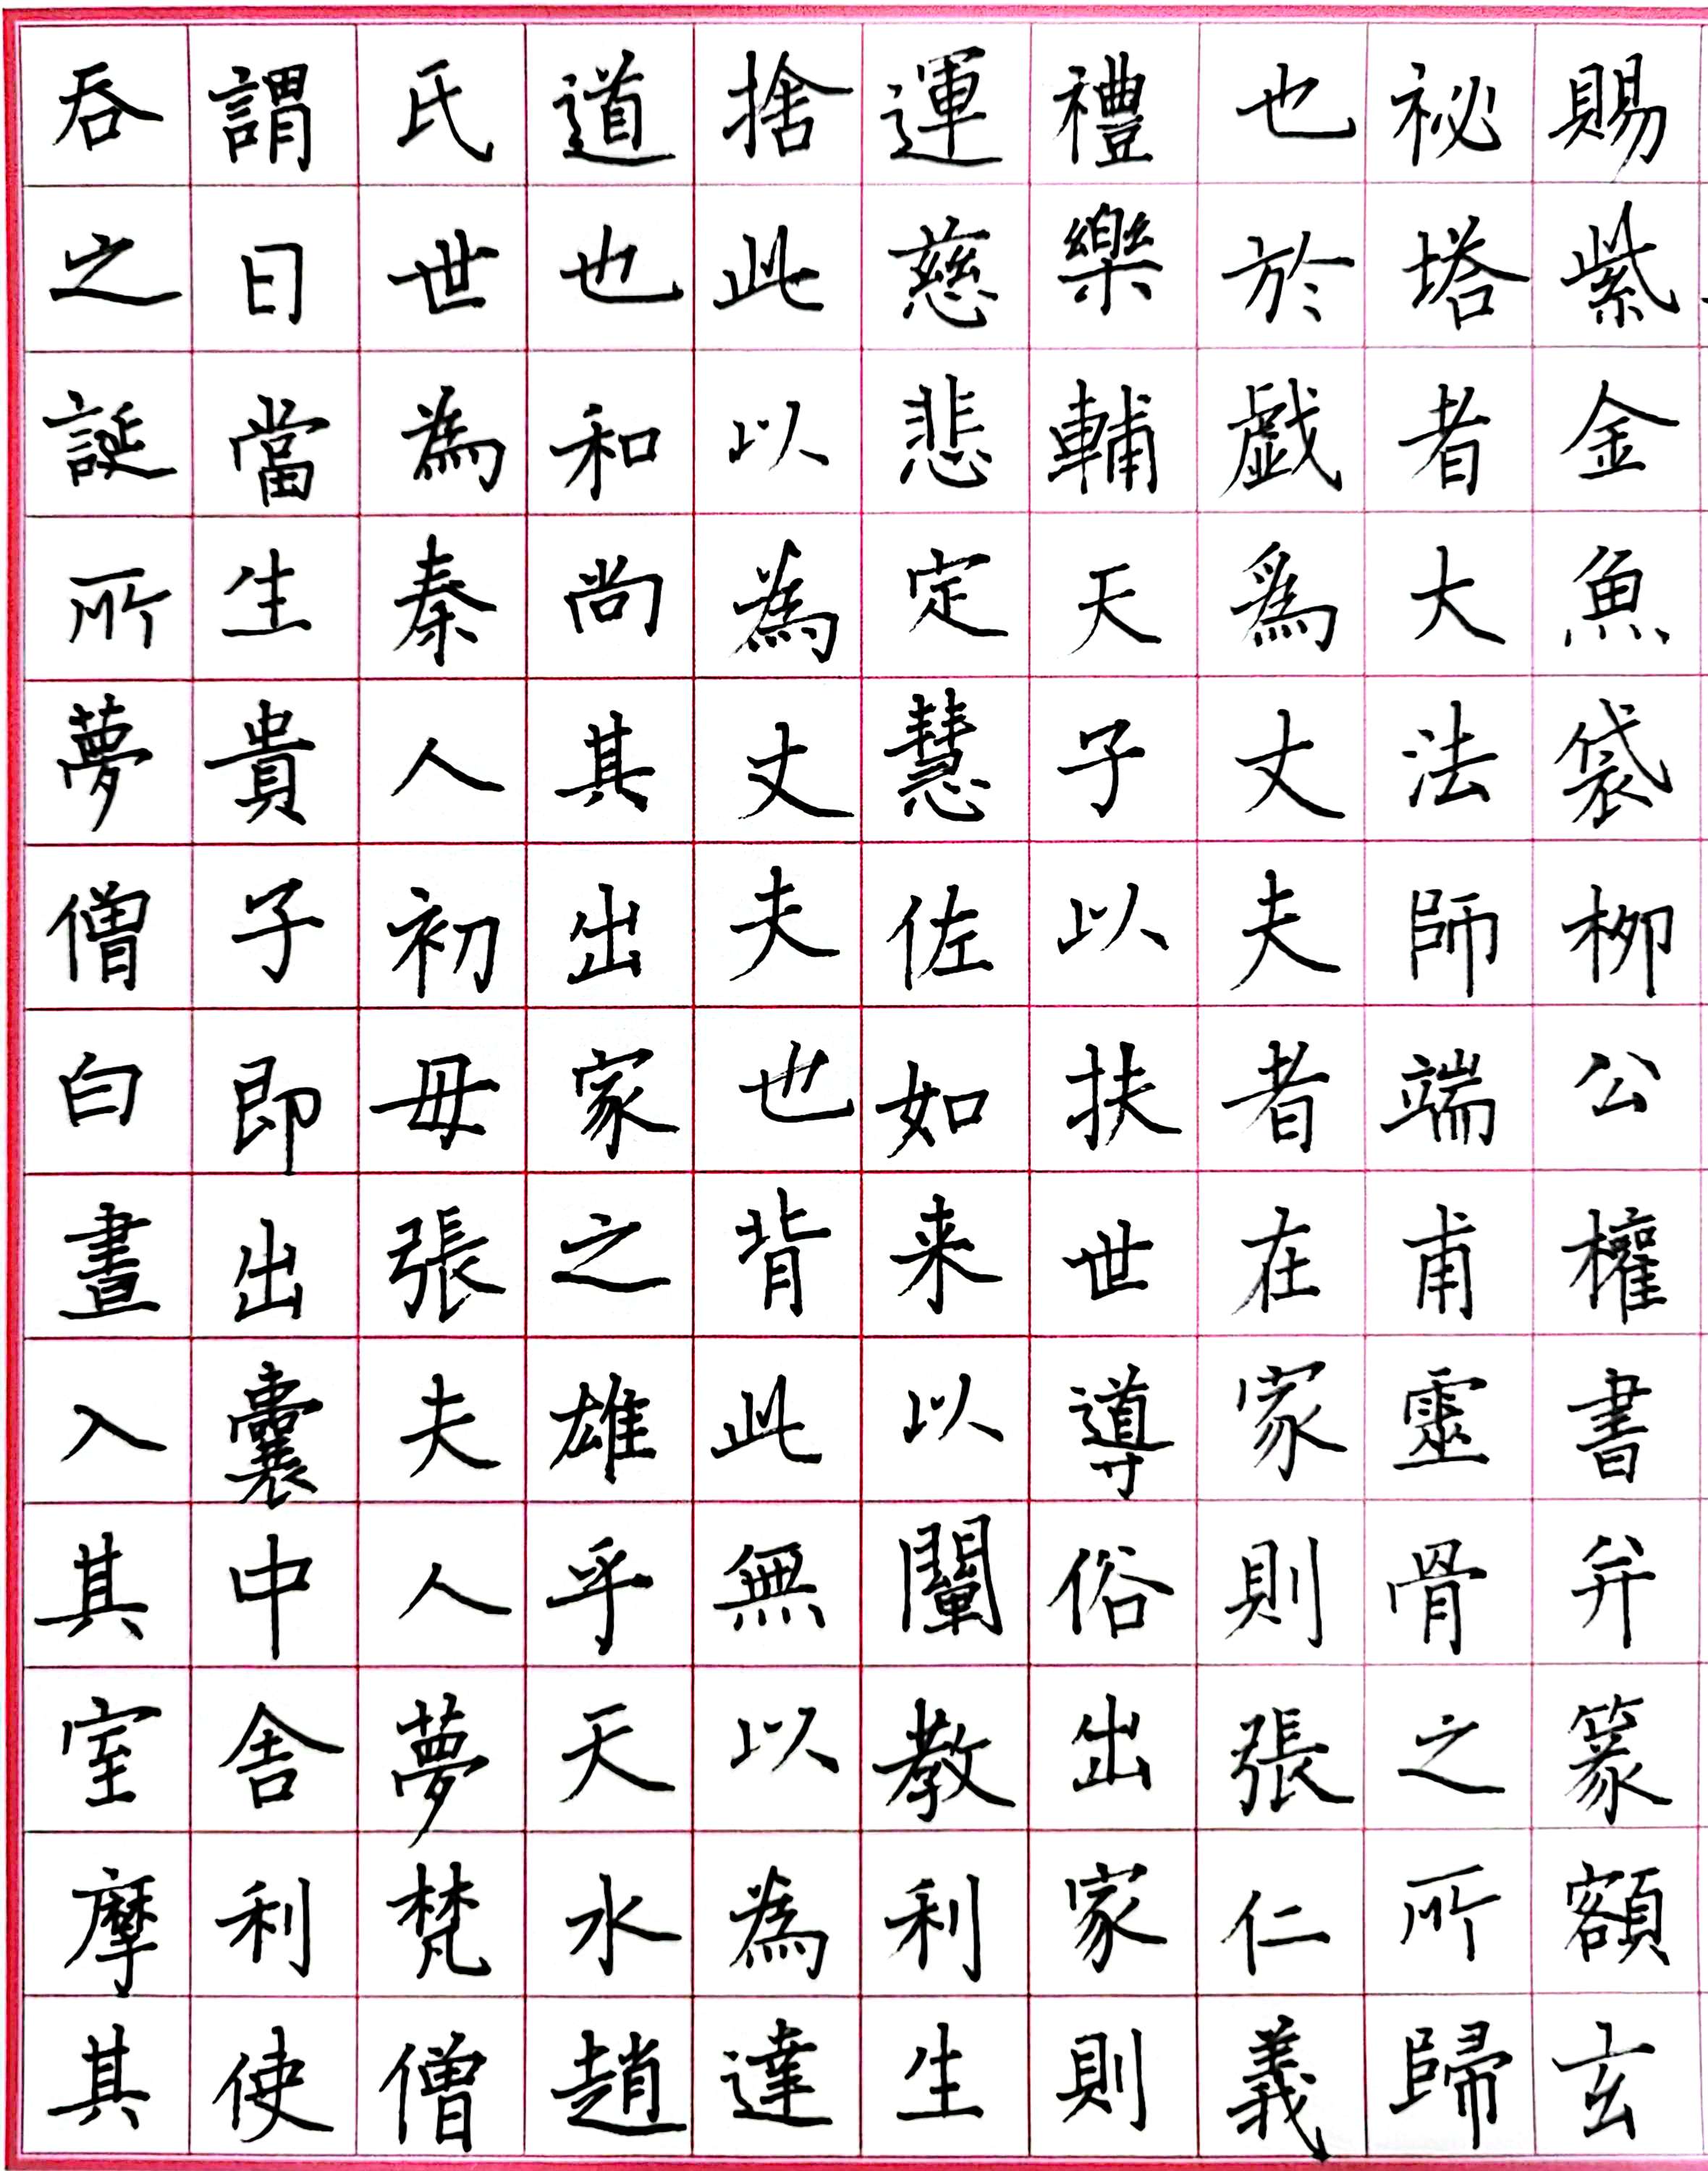 賜紫金魚袋柳公權書并篆額玄
祕塔者大法師端甫靈骨之所歸
也於戲爲丈夫者在家則張仁義
禮樂輔天子以扶世導俗出家則
運慈悲定慧佐如来以闡教利生
捨此以為丈夫也背此無以為達
道也和尚其出家之雄乎天水趙
氏世為秦人初母張夫人夢梵僧
謂曰當生貴子即出囊中舍利使
吞之誕所夢僧白晝入其室摩其